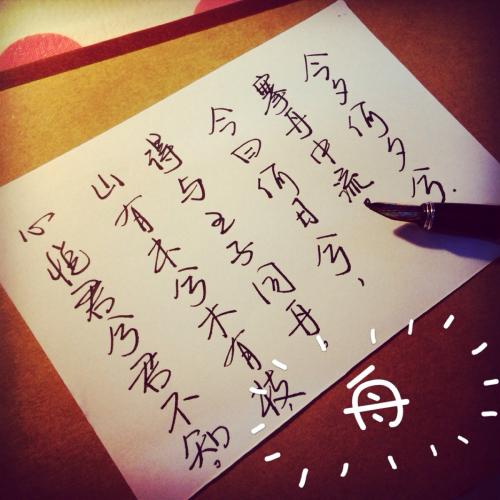 今夕何夕兮.
搴舟中流
今日何日兮，
得与王子同舟，
山有木兮木有枝，
心悦君兮君不知。
舟